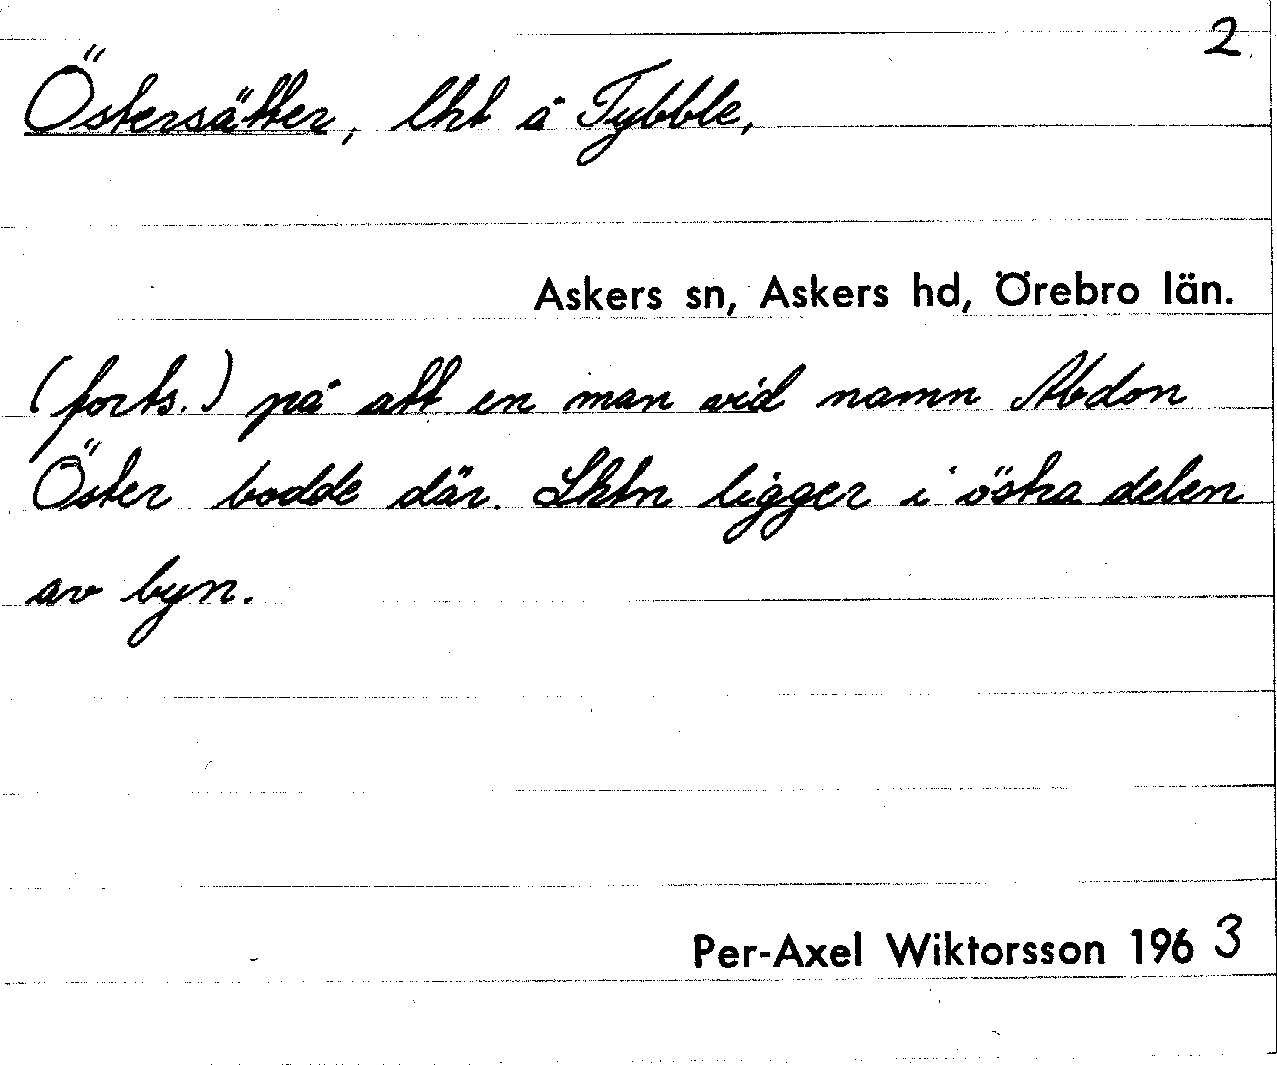 2.
Östersätter, lht å Tybble,
Askers sn, Askers hd, Örebro län.
(forts.) på att en man vid namn Abdon
Öster bodde där. Lhtn ligger i östra delen
av byn.
Per-Axel Wiktorsson 1963